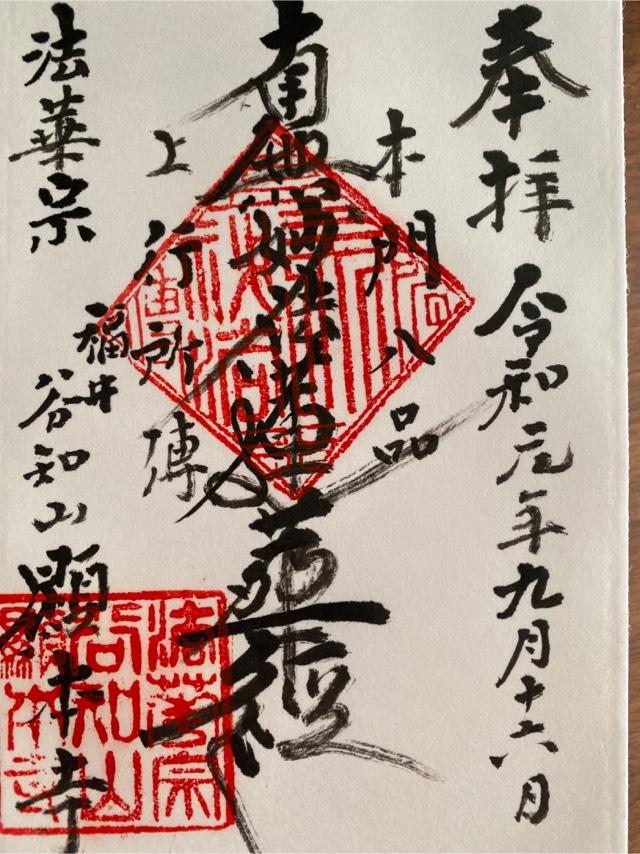 奉拝 令和元年九月十六日
本門八品
南無妙法蓮華經
上行所傳
法華宗 福井 谷知山 顕本寺
法華宗
谷知山
顕本寺